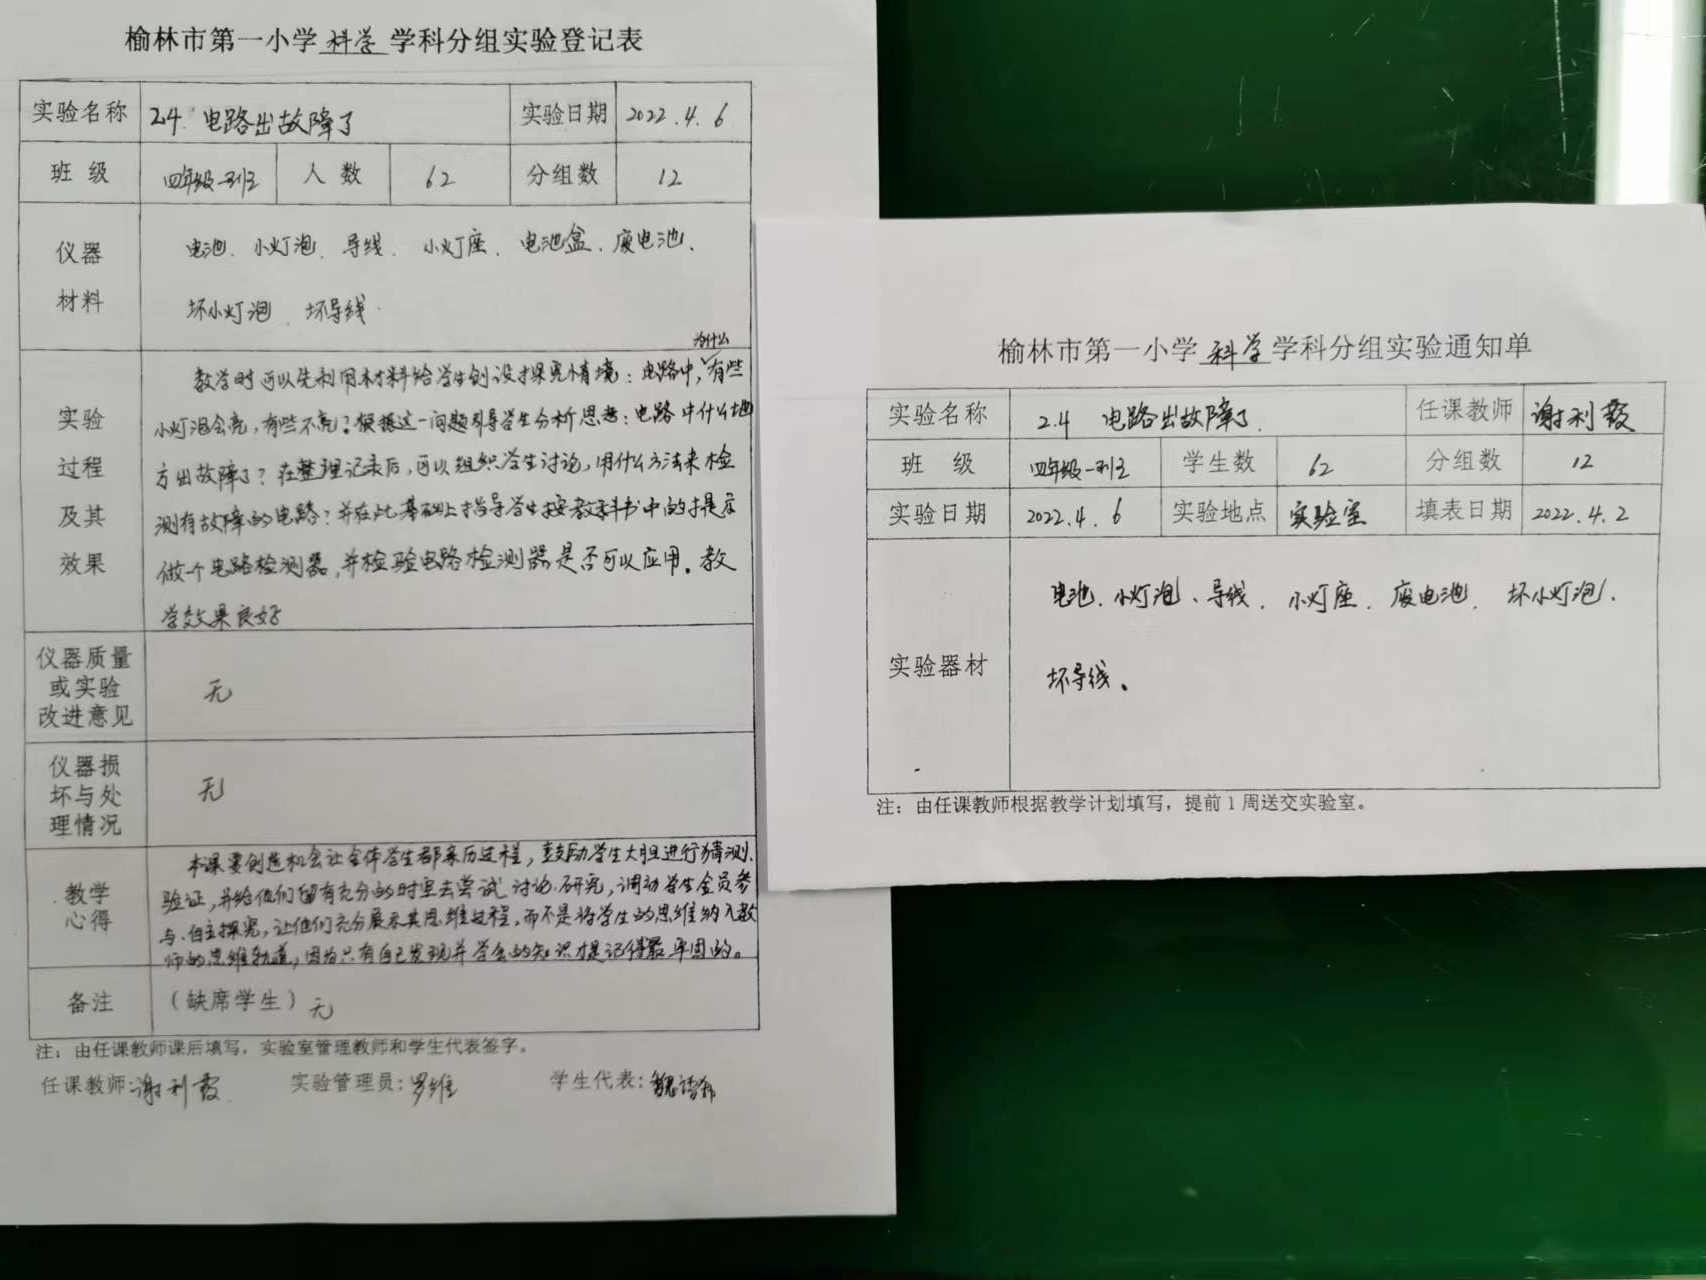 榆林市第一小学科学学科分组实验登记表
实验名称 2.4 电路出故障了 实验日期 2022.4.6
班级 四年级一班 人数 62 分组数 12
仪器材料 电池、小灯泡、导线、小灯座、电池盒、废电池、
坏小灯泡、坏导线.
为什么
实验过程及其效果 教学时可以先利用材料给学生创设探究情境：电路中，有些
小灯泡会亮，有些不亮？根据这一问题引导学生分析思考：电路中什么地
方出故障了？在整理记录后，可以组织学生讨论，用什么方法来检
测有故障的电路？并在此基础上指导学生按教科书中的提示
做一个电路检测器，并检验电路检测器是否可以应用。教
学效果良好
仪器质量或实验改进意见 无
仪器损坏与处理情况 无
教学心得 本课要创造机会让全体学生都亲历过程，鼓励学生大胆进行猜测、
验证，并给他们留有充分的时里去尝试、讨论、研究，调动学生全员参
与、自主探究，让他们充分展示其思维过程，而不是将学生的思维纳入教
师的思维轨道，因为只有自己发现并学会的知识才是记得最牢固的。
备注 （缺席学生）无
注：由任课教师课后填写，实验室管理教师和学生代表签字。
任课教师：谢利霞 实验管理员：罗维 学生代表：魏
榆林市第一小学科学学科分组实验通知单
实验名称 2.4 电路出故障了. 任课教师 谢利霞
班级 四年级一班 学生数 62 分组数 12
实验日期 2022.4.6 实验地点 实验室 填表日期 2022.4.2
实验器材 电池、小灯泡、导线、小灯座、废电池、坏小灯泡、
坏导线。
注：由任课教师根据教学计划填写，提前1周送交实验室。